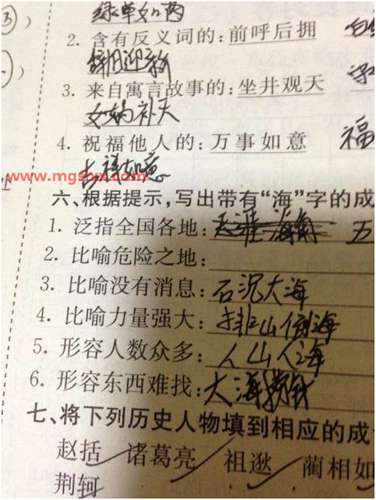 绿草如茵
2. 含有反义词的：前呼后拥
辞旧迎新
3. 来自寓言故事的：坐井观天
女娲补天
4. 祝福他人的：万事如意 福
吉祥如意
六、根据提示，写出带有“海”字的成
1. 泛指全国各地： 海角 五
2. 比喻危险之地：
3. 比喻没有消息：石沉大海
4. 比喻力量强大：排山倒海
5. 形容人数众多：人山人海
6. 形容东西难找：大海捞针
七、将下列历史人物填到相应的成
赵括 诸葛亮 祖逖 蔺相如
荆轲